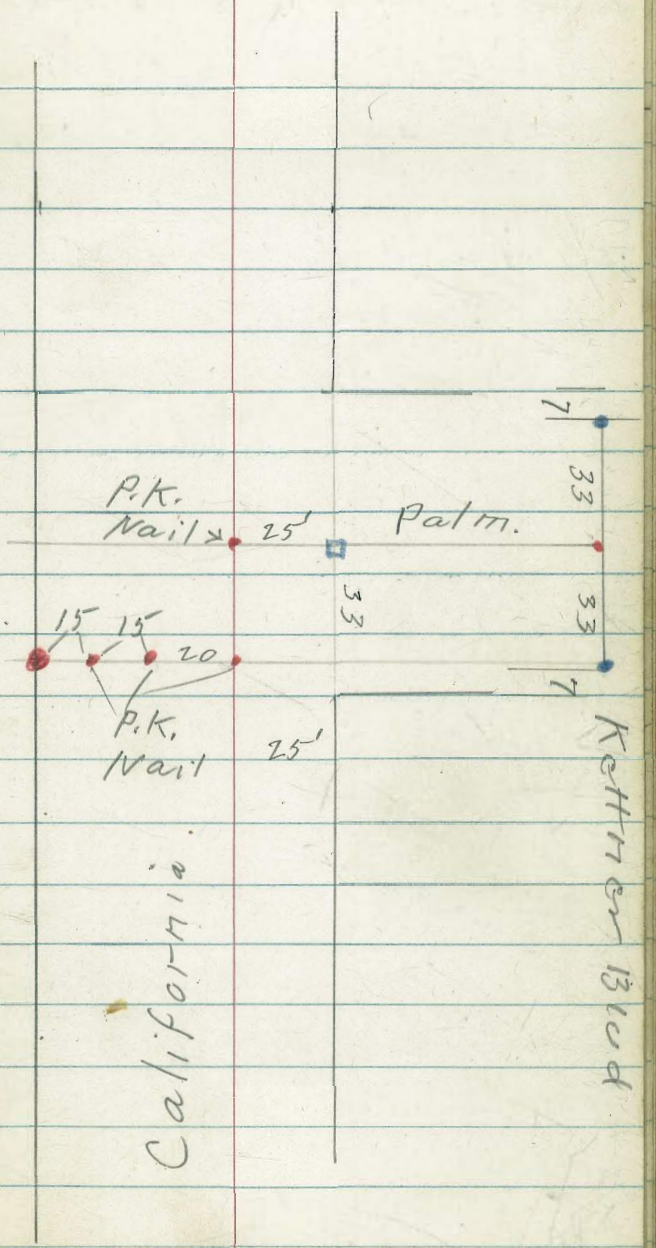 7
33
P.K.
Nail
25'
Palm.
33
33
15 15
20
7
P.K.
Nail
25'
Kettner Blvd
California.